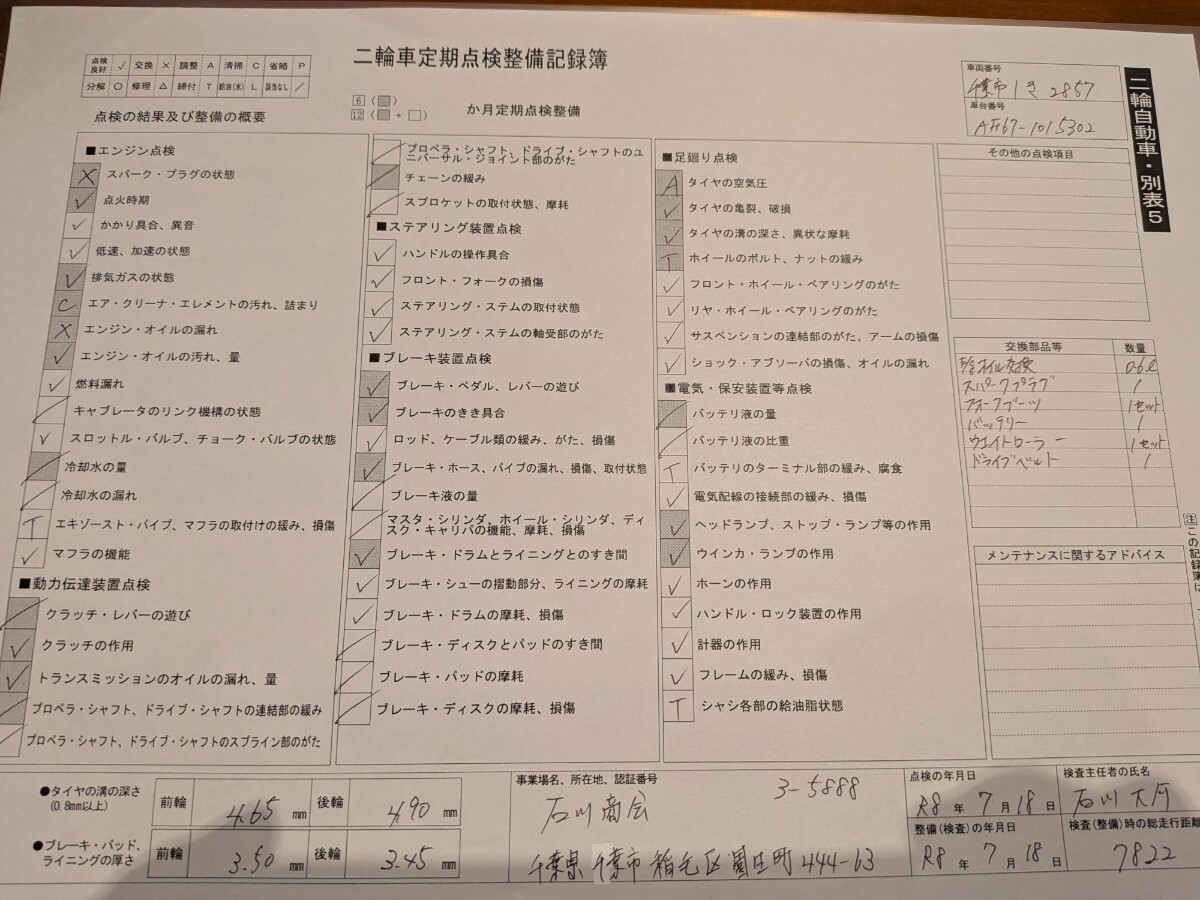 二輪車定期点検整備記録簿
点検良好 ✓ 交換 × 調整 A 清掃 C 省略 P
分解 ○ 修理 △ 締付 T 給油(水) L 該当なし ／
6 ( )
12 ( + )
か月定期点検整備
点検の結果及び整備の概要
車両番号
千葉市 1 き 2857
車台番号
AF67-1015302
二輪自動車・別表5
■エンジン点検
× スパーク・プラグの状態
✓ 点火時期
✓ かかり具合、異音
✓ 低速、加速の状態
✓ 排気ガスの状態
C エア・クリーナ・エレメントの汚れ、詰まり
× エンジン・オイルの漏れ
✓ エンジン・オイルの汚れ、量
✓ 燃料漏れ
／ キャブレータのリンク機構の状態
✓ スロットル・バルブ、チョーク・バルブの状態
／ 冷却水の量
／ 冷却水の漏れ
T エキゾースト・パイプ、マフラの取付けの緩み、損傷
✓ マフラの機能
■動力伝達装置点検
／ クラッチ・レバーの遊び
✓ クラッチの作用
✓ トランスミッションのオイルの漏れ、量
／ プロペラ・シャフト、ドライブ・シャフトの連結部の緩み
／ プロペラ・シャフト、ドライブ・シャフトのスプライン部のがた
／ プロペラ・シャフト、ドライブ・シャフトのユ
ニバーサル・ジョイント部のがた
／ チェーンの緩み
／ スプロケットの取付状態、摩耗
■ステアリング装置点検
✓ ハンドルの操作具合
✓ フロント・フォークの損傷
✓ ステアリング・ステムの取付状態
✓ ステアリング・ステムの軸受部のがた
■ブレーキ装置点検
✓ ブレーキ・ペダル、レバーの遊び
✓ ブレーキのきき具合
✓ ロッド、ケーブル類の緩み、がた、損傷
✓ ブレーキ・ホース、パイプの漏れ、損傷、取付状態
／ ブレーキ液の量
／ マスタ・シリンダ、ホイール・シリンダ、ディ
スク・キャリパの機能、摩耗、損傷
✓ ブレーキ・ドラムとライニングとのすき間
✓ ブレーキ・シューの摺動部分、ライニングの摩耗
✓ ブレーキ・ドラムの摩耗、損傷
／ ブレーキ・ディスクとパッドのすき間
／ ブレーキ・パッドの摩耗
／ ブレーキ・ディスクの摩耗、損傷
■足廻り点検
A タイヤの空気圧
✓ タイヤの亀裂、破損
✓ タイヤの溝の深さ、異状な摩耗
T ホイールのボルト、ナットの緩み
✓ フロント・ホイール・ベアリングのがた
✓ リヤ・ホイール・ベアリングのがた
✓ サスペンションの連結部のがた、アームの損傷
✓ ショック・アブソーバの損傷、オイルの漏れ
■電気・保安装置等点検
／ バッテリ液の量
／ バッテリ液の比重
T バッテリのターミナル部の緩み、腐食
✓ 電気配線の接続部の緩み、損傷
✓ ヘッドランプ、ストップ・ランプ等の作用
✓ ウインカ・ランプの作用
✓ ホーンの作用
✓ ハンドル・ロック装置の作用
✓ 計器の作用
✓ フレームの緩み、損傷
T シャシ各部の給油脂状態
その他の点検項目
交換部品等 数量
オイル交換 0.6ℓ
スパークプラグ 1
フォークブーツ 1セット
バッテリー 1
ウエイトローラー 1セット
ドライブベルト 1
メンテナンスに関するアドバイス
注 この記録簿は
●タイヤの溝の深さ
(0.8mm以上)
前輪 4.65 mm 後輪 4.90 mm
●ブレーキ・パッド、
ライニングの厚さ
前輪 3.50 mm 後輪 3.45 mm
事業場名、所在地、認証番号
3-5888
石川商会
千葉県千葉市稲毛区園生町444-63
点検の年月日
R8 年 7 月 18 日
整備(検査)の年月日
R8 年 7 月 18 日
検査主任者の氏名
石川 大河
検査(整備)時の総走行距離
7822